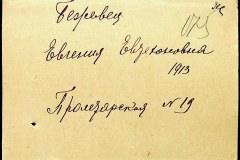 Бежевец
Евгения Евзеконовна
1913
Пролетарская № 19